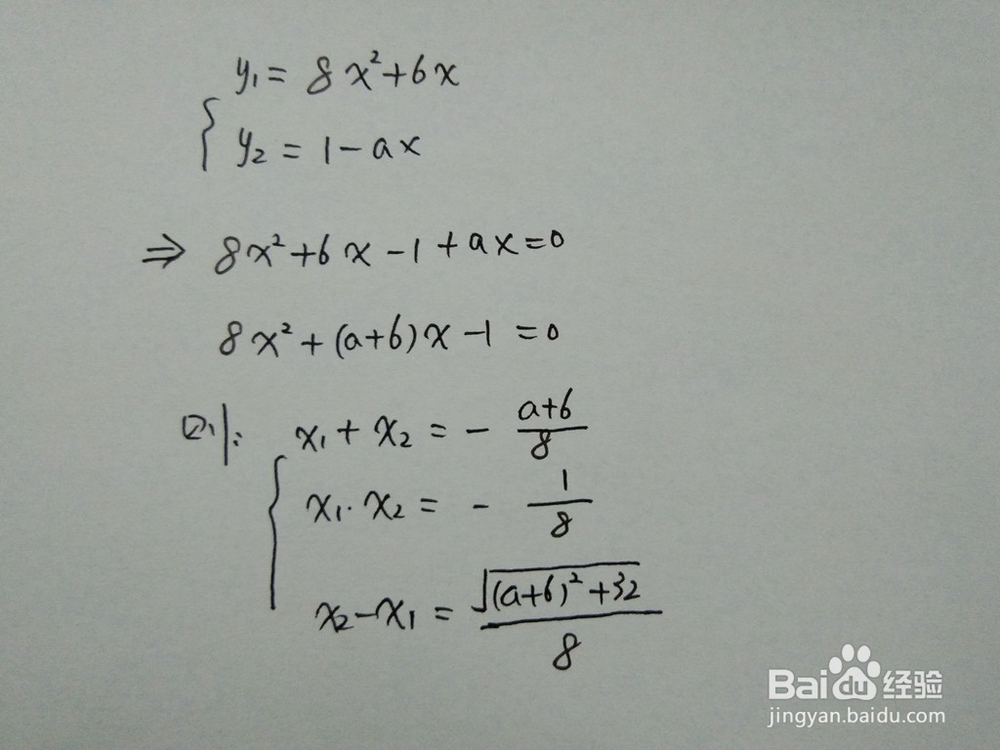 y₁ = 8x²+6x
y₂ = 1-ax
⇒ 8x²+6x-1+ax=0
8x²+(a+6)x-1=0
则: x₁+x₂ = - a+6/8
x₁·x₂ = - 1/8
x₂-x₁ = √(a+6)²+32/8
Baidu经验
jingyan.baidu.com